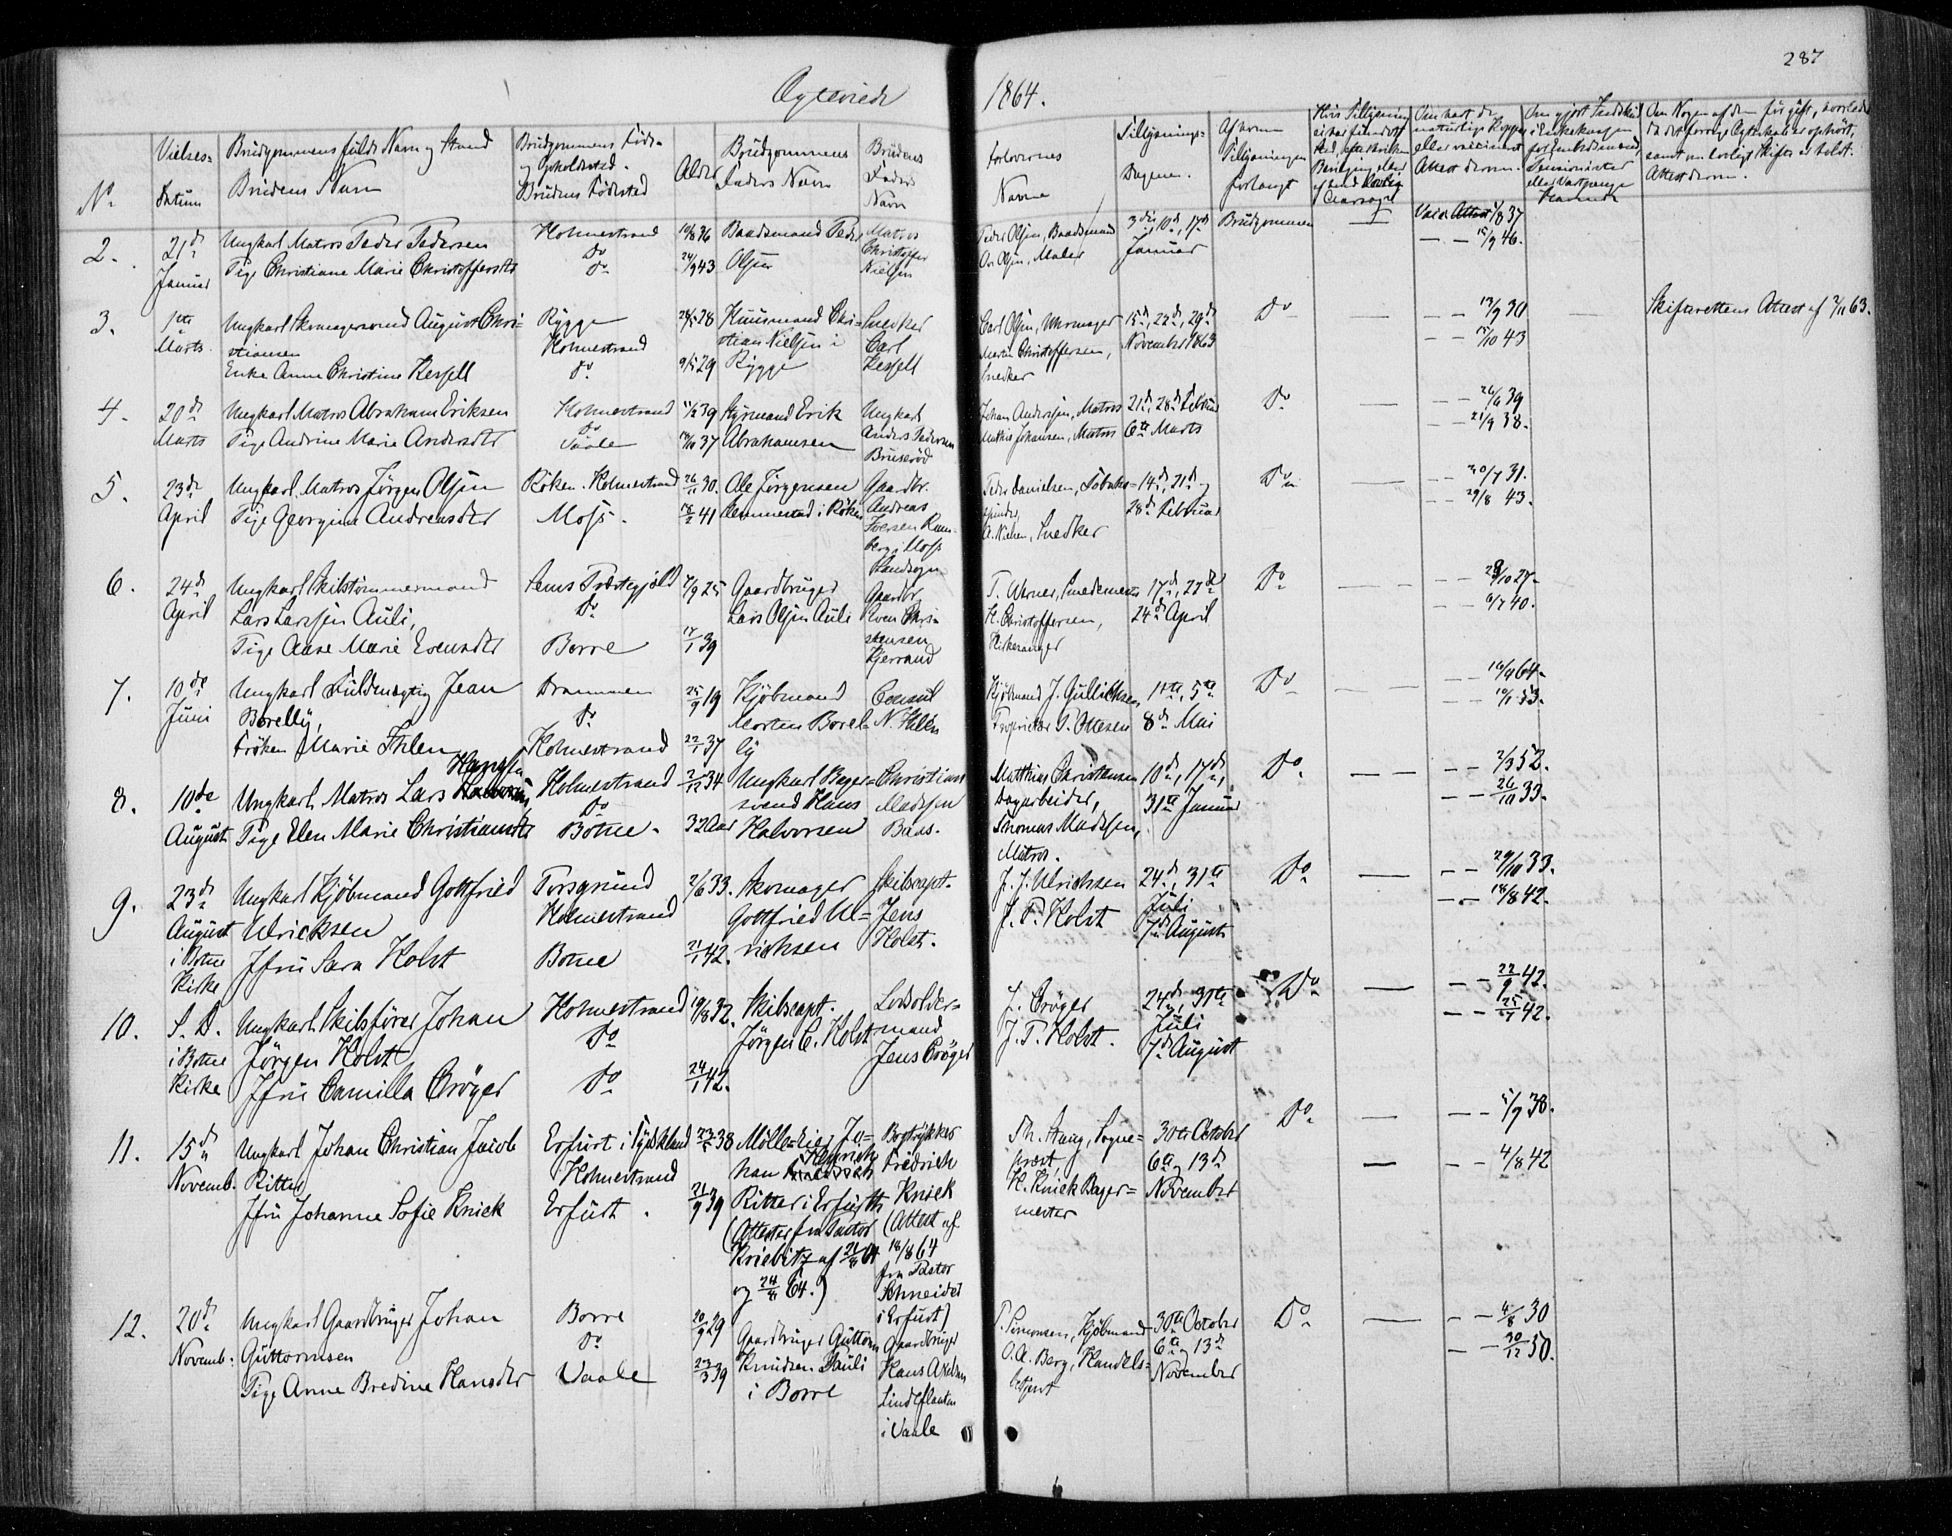 287
Ægteviede 1864.
No
Vielses-
Datum
Brudgommens fulde Navn og Stand
Brudens Navn
Brudgommens Føde-
og Opholdssted.
Brudens Fødested
Alder
Brudgommens
Faders Navn
Brudens
Faders
Navn
Forlovernes
Navne
Tillysnings-
Dagene.
Af hvem
Tillysningen
forlangt
2.
21de
Januar
Ungkarl Matros Peder Pedersen
Pige Christiane Marie Christoffersdtr
Holmestrand
Do
Do
19/8 36
24/9 43
Baadsmand Peder
Olsen
Matros
Christoffer
Nielsen
Peder Olsen, Baadsmand
Ole Olsen, Maler
3die, 10de, 17de
Januar
Brudgommen
—
Vacc. Attest 1/8 37
— — 15/9 46.
3.
1ste
Marts
Ungkarl Skomagersvend August Chri-
stiansen
Enke Anne Christine Kessell
Rygge
Holmestrand
Do
28/5 28
9/5 29
Huusmand Chri-
stian Nielsen i
Rygge
Snedker
Carl
Kessell
Carl Olsen, Uhrmager
Martin Christoffersen,
Snedker
15de, 22de, 29de
November 1863
Do
—
— — 13/9 30
— — 15/10 43
Skifterettens Attest af 2/11 63.
4.
20de
Marts
Ungkarl Matros Abraham Eriksen
Pige Andrine Marie Andersdtr
Holmestrand
Do
Vaale
11/2 39
19/10 37
Styrmand Erik
Abrahamsen
Ungkarl
Anders Pedersen
Bruserød
Johan Andersen, Matros
Mathis Johansen, Matros
21de, 28de Februar
6te Marts
Do
—
— — 26/6 39
— — 21/9 38.
5.
23de
April
Ungkarl Matros Jørgen Olsen
Pige Georgine Andreasdtr
Røken. Holmestrand
Moss.
26/11 30.
18/2 41
Ole Jørgensen
Hemmestad i Røken
Gaardbr.
Andreas
Iversen Ram-
berg i Moss
Landsogn
Peder Danielsen, Tobaks-
spinder,
A. Nielsen, Snedker
14de, 21de og
28de Februar
Do
—
— — 30/7 31.
— — 29/8 43.
6.
24de
April
Ungkarl Skibstømmermand
Lars Larsen Auli,
Pige Aase Marie Evensdtr
Sems Præstegjæld
Do
Borre
7/9 25
17/1 39
Gaardbruger
Lars Olsen Auli
Gaardbr.
Even Chri-
stensen
Kjerrand
T. Werner, Smedemester
H. Christoffersen,
Kirkesanger
17de, 22de
24de April
Do
— —
— — 28/10 27.
— — 6/7 40.
7.
10de
Juni
Ungkarl Fuldmægtig Jean
Borelly,
Frøken Marie Ihlen
Drammen
Do
Holmestrand
25/9 19
22/1 37
Kjøbmand
Morten Borel-
ly
Consul
N. Ihlen
Kjøbmand J. Gullichsen
Proprietær P. Ottesen
1ste, 5te
8de Mai
Do
— —
— — 16/4 64.
— — 19/1 53.
8.
10de
August
Ungkarl Matros Lars Hansen
Pige Elen Marie Christiansdtr
Holmestrand
Do
Botne.
2/12 34
32 Aar
Ungkarl Bager-
svend Hans
Halvorsen
Christian
Madssen
Baas.
Matthias Christensen
Dagarbeider,
Thomas Madssen,
Matros.
10de, 17de,
31te Januar
Do
— —
— — 2/3 52.
— — 26/10 33.
9.
23de
August
i Botne
Kirke
Ungkarl Kjøbmand Gottfried
Ulrichsen
Jfru Sara Holst
Porsgrund
Holmestrand
Botne
2/6 33.
21/1 42.
Skomager
Gottfried Ul-
richsen
Skibscapt.
Jens
Holst.
J. J. Ulrichsen
J. P. Holst
24de, 31te
Juli
7de August
Do
—
— — 29/10 33.
— — 18/8 42.
10.
S. D.
i Botne
Kirke
Ungkarl Skibsfører Johan
Jørgen Holst
Jfru Camilla Crøger
Holmestrand
Do
Do
19/8 32.
24/1 42.
Skibscapt.
Jørgen C. Holst
Lodsolder-
mand
Jens Crøger
J. Crøger
J. P. Holst.
24de, 31te
Juli
7de August
Do
—
— — 22/9 42.
— — 25/9 42.
11.
15de
Novemb.
Ungkarl Johan Christian Jacob
Ritter
Jfru Johanne Sofie Kniek
Erfurt i Tydskland
Holmestrand
Erfurt.
23/5 38
21/9 39
Mølle-Eier Jo-
han Heinrich
Ritter i Erfurth
(Attester fra Pastor
Kriebitz af 21/8 64
og 24/8 64.)
Bogtrykker
Friedrich
Kniek
(Attest af
18/8 64
fra Pastor
Schneider
i Erfurt)
Th. Haug, Sogne-
præst,
H. Kniek Bager-
mester
30te October
6te og 13de
November
Do
—
— — 5/9 38.
— — 4/8 42
12.
20de
Novemb:
Ungkarl Gaardbruger Johan
Guttormsen
Pige Anne Bredine Hansdtr
Borre
Do
Vaale
20/9 29
23/3 39
Gaardbruger Guttorm
Knudsen Pauli
i Borre
Gaardbruger
Hans Axelsen
Lindeflaaten
i Vaale
P. Simonsen, Kjøbmand
O. A. Berg, Handels-
betjent
30te October
6te og 13de
November
Do
—
— — 4/8 30
— — 30/12 50.